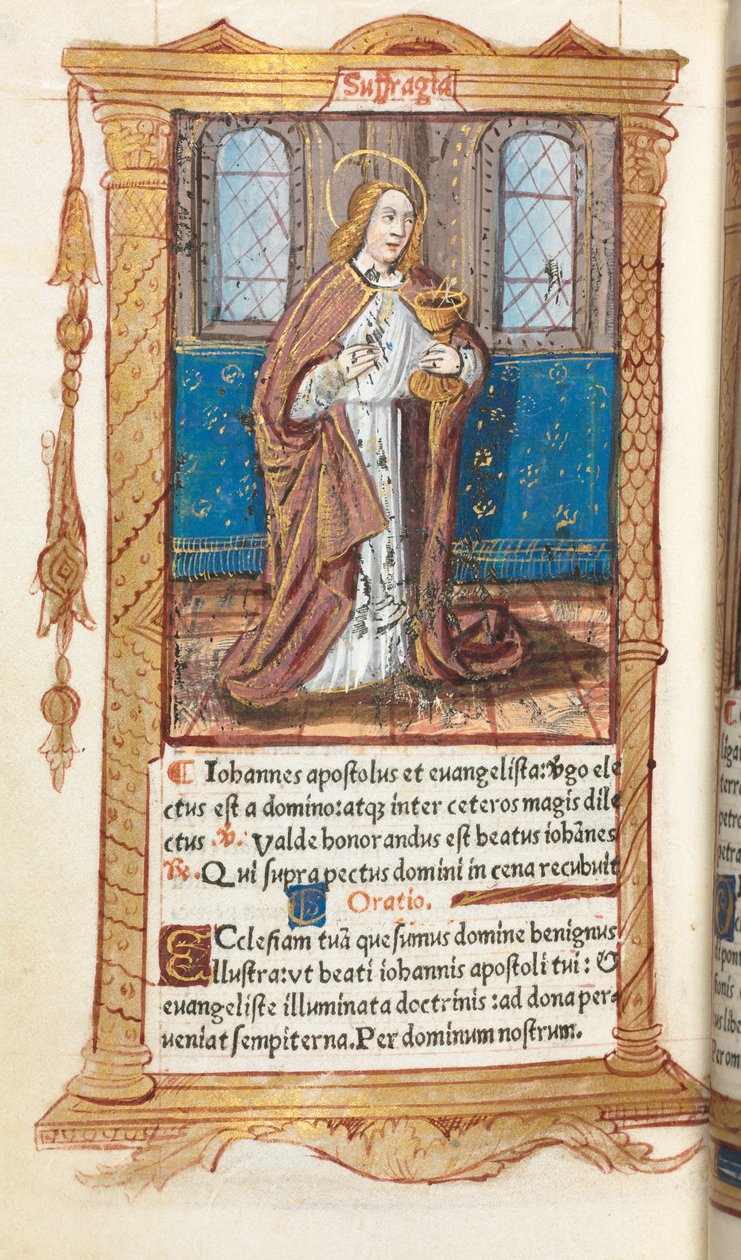 Suffragia
Iohannes apostolus et euangelista: vgo ele
ctus est a domino: atqȝ inter ceteros magis dile
ctus ℣. Valde honorandus est beatus iohãnes
℟. Qui supra pectus domini in cena recubuit
Oratio.
ECclesiam tuã quesumus domine benignus
illustra: vt beati iohannis apostoli tui: &
euangeliste illuminata doctrinis: ad dona per-
ueniat sempiterna. Per dominum nostrum.